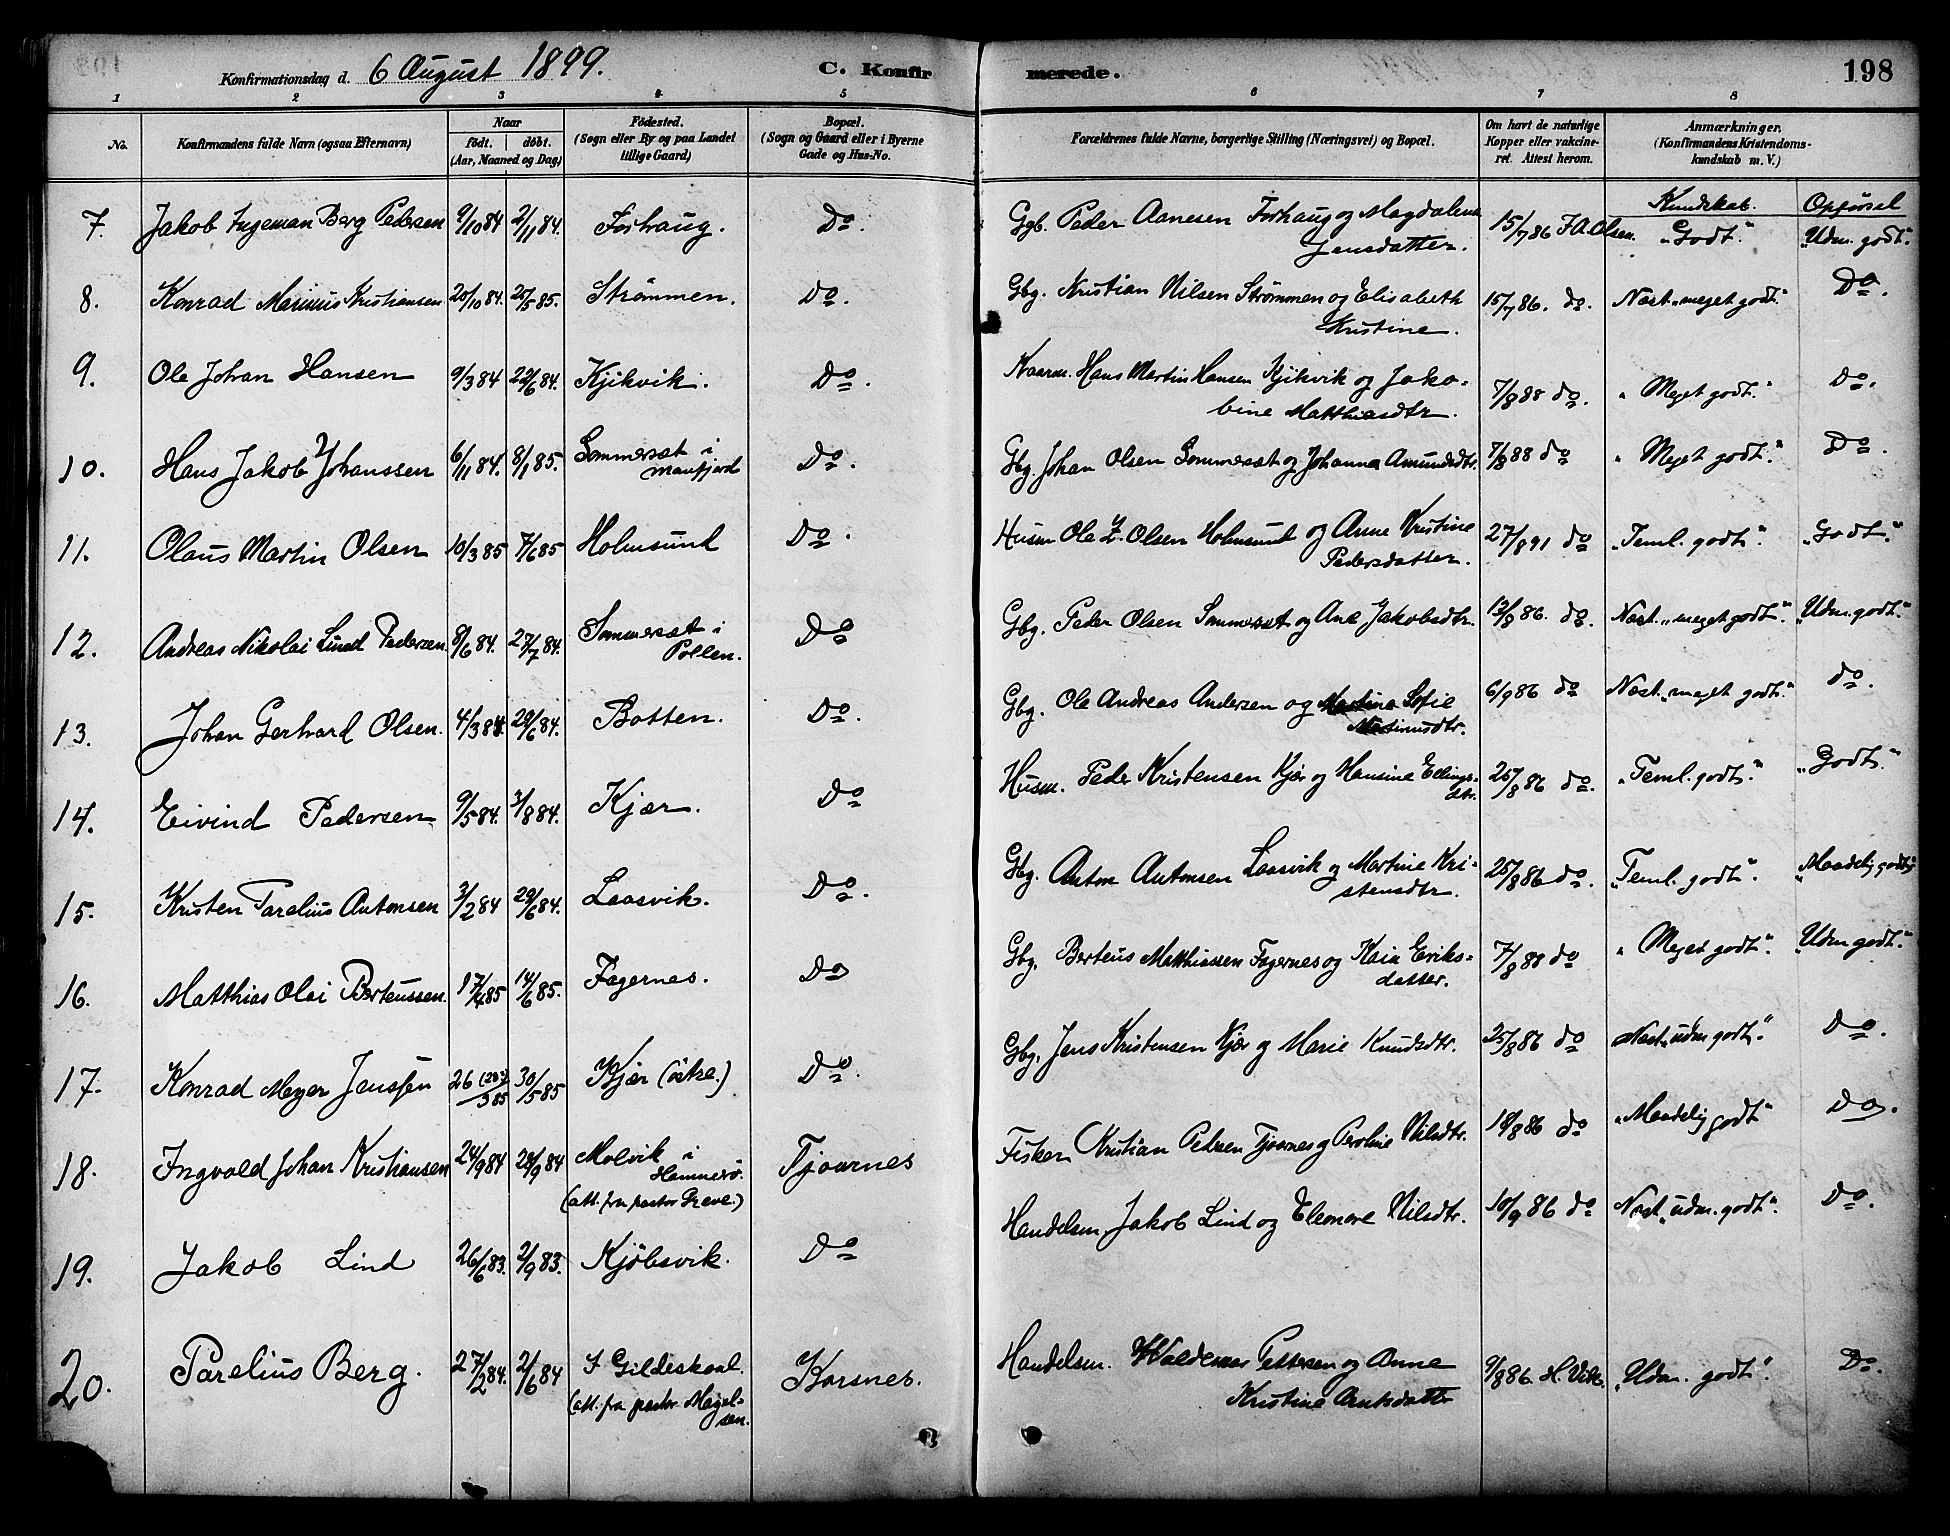 Konfirmationsdag d. 6 August 1899. C. Konfirmerede. 198
1 2 3 4 5 6 7 8
No. Konfirmandens fulde Navn (ogsaa Efternavn) Naar født. døbt. (Aar, Maaned og Dag) Fødested. (Sogn eller By og paa Landet tillige Gaard) Bopæl. (Sogn og Gaard eller i Byerne Gade og Hus-No. Forældrenes fulde Navne, borgerlige Stilling (Næringsvei) og Bopæl. Om havt de naturlige Kopper eller vakcineret. Attest herom. Anmærkninger. (Konfirmandens Kristendomskundskab m. V.)
Kundskab. Opførsel
7. Jakob Ingeman Berg Pedersen 9/10 84 2/11 84. Forhaug. Do. Ggb. Peder Aanesen Forhaug og Magdalena
Jensdatter. 15/7 86 J A Olsen. "Godt." "Udm. godt."
8. Konrad Marinus Kristiansen 20/10 84. 25/5 85. Strømmen. Do. Gbg. Kristian Nilsen Strømmen og Elisabeth
Kristine. 15/7 86. do. Næst "meget godt." Do.
9. Ole Johan Hansen 9/3 84 22/6 84. Kjikvik. Do. Kaarm. Hans Martin Hansen Kjikvik og Jako-
bine Matthiasdtr. 7/8 88 do. "Meget godt." Do.
10. Hans Jakob Johanssen 6/11 84. 8/1 85. Sommersæt i
manfjord Do. Gbg. Johan Olsen Sommersæt og Johanna Amundsdtr. 7/8 88 do "Meget godt." Do.
11. Olaus Martin Olsen 10/3 85 7/6 85 Holmsund Do. Husm Ole Z. Olsen Holmsund og Anne Kristine
Pedersdatter. 27/8 91 do "Teml. godt." "Godt."
12. Andreas Nikolai Lund Pedersen. 8/6 84. 27/7 84. Sommersæt i
Pollen. Do Gbg. Peder Olsen Sommersæt og Ane Jakobsdtr. 13/8 86. do. Næst "meget godt." "Udm. godt."
13. Johan Gerhard Olsen. 4/3 84. 29/6 84. Botten. Do. Gbg. Ole Andreas Andersen og Martina Sofie
Martinusdtr. 6/9 86 do Næst "meget godt." do.
14. Eivind Pedersen 9/5 84. 3/8 84. Kjær. Do Husm. Peder Kristensen Kjær og Hansine Ellings-
dtr. 25/8 86 do. "Teml. godt." "Godt."
15. Kristen Parelius Antonsen 3/2 84 29/6 84. Laasvik. Do. Gbg. Anton Antonsen Laasvik og Martine Kri-
stensdtr. 25/8 86 do. "Teml. godt." "Maadelig godt"
16. Matthias Olai Berteussen. 17/4 85 14/6 85. Fagernes. Do Gbg. Berteus Matthiassen Fagernes og Kaia Eriks-
datter. 7/8 88 do "Meget godt." "Udm godt."
17. Konrad Meyer Jenssen 26 /3 85 30/5 85 Kjær (östre.) Do. Gbg. Jens Kristensen Kjær og Marie Knudsdtr. 25/8 86 do Næst "udm godt." Do.
18. Ingvald Johan Kristiansen 24/9 84 28/9 84 Molvik i
Hammerö.
(att. fra pastor Greve.) Tjoarnes Fisker Kristian Pedersen Tjoarnes og Peroline Nilsdtr. 18/8 86 do "Maadelig godt" Do.
19. Jakob Lind 26/6 83. 2/9 83. Kjöbsvik. Do Handelsm. Jakob Lind og Eleonore Nilsdtr. 10/9 86 do Næst "udm. godt." Do.
20. Parelius Berg. 27/2 84. 2/6 84 I Gildeskaal.
(att. fra pastor Magel-
sen. Korsnes. Handelsm. Waldemar Pettersen og Anne
Kristine Arntsdatter 9/8 86. H. Vik. "Udm. godt." Do.